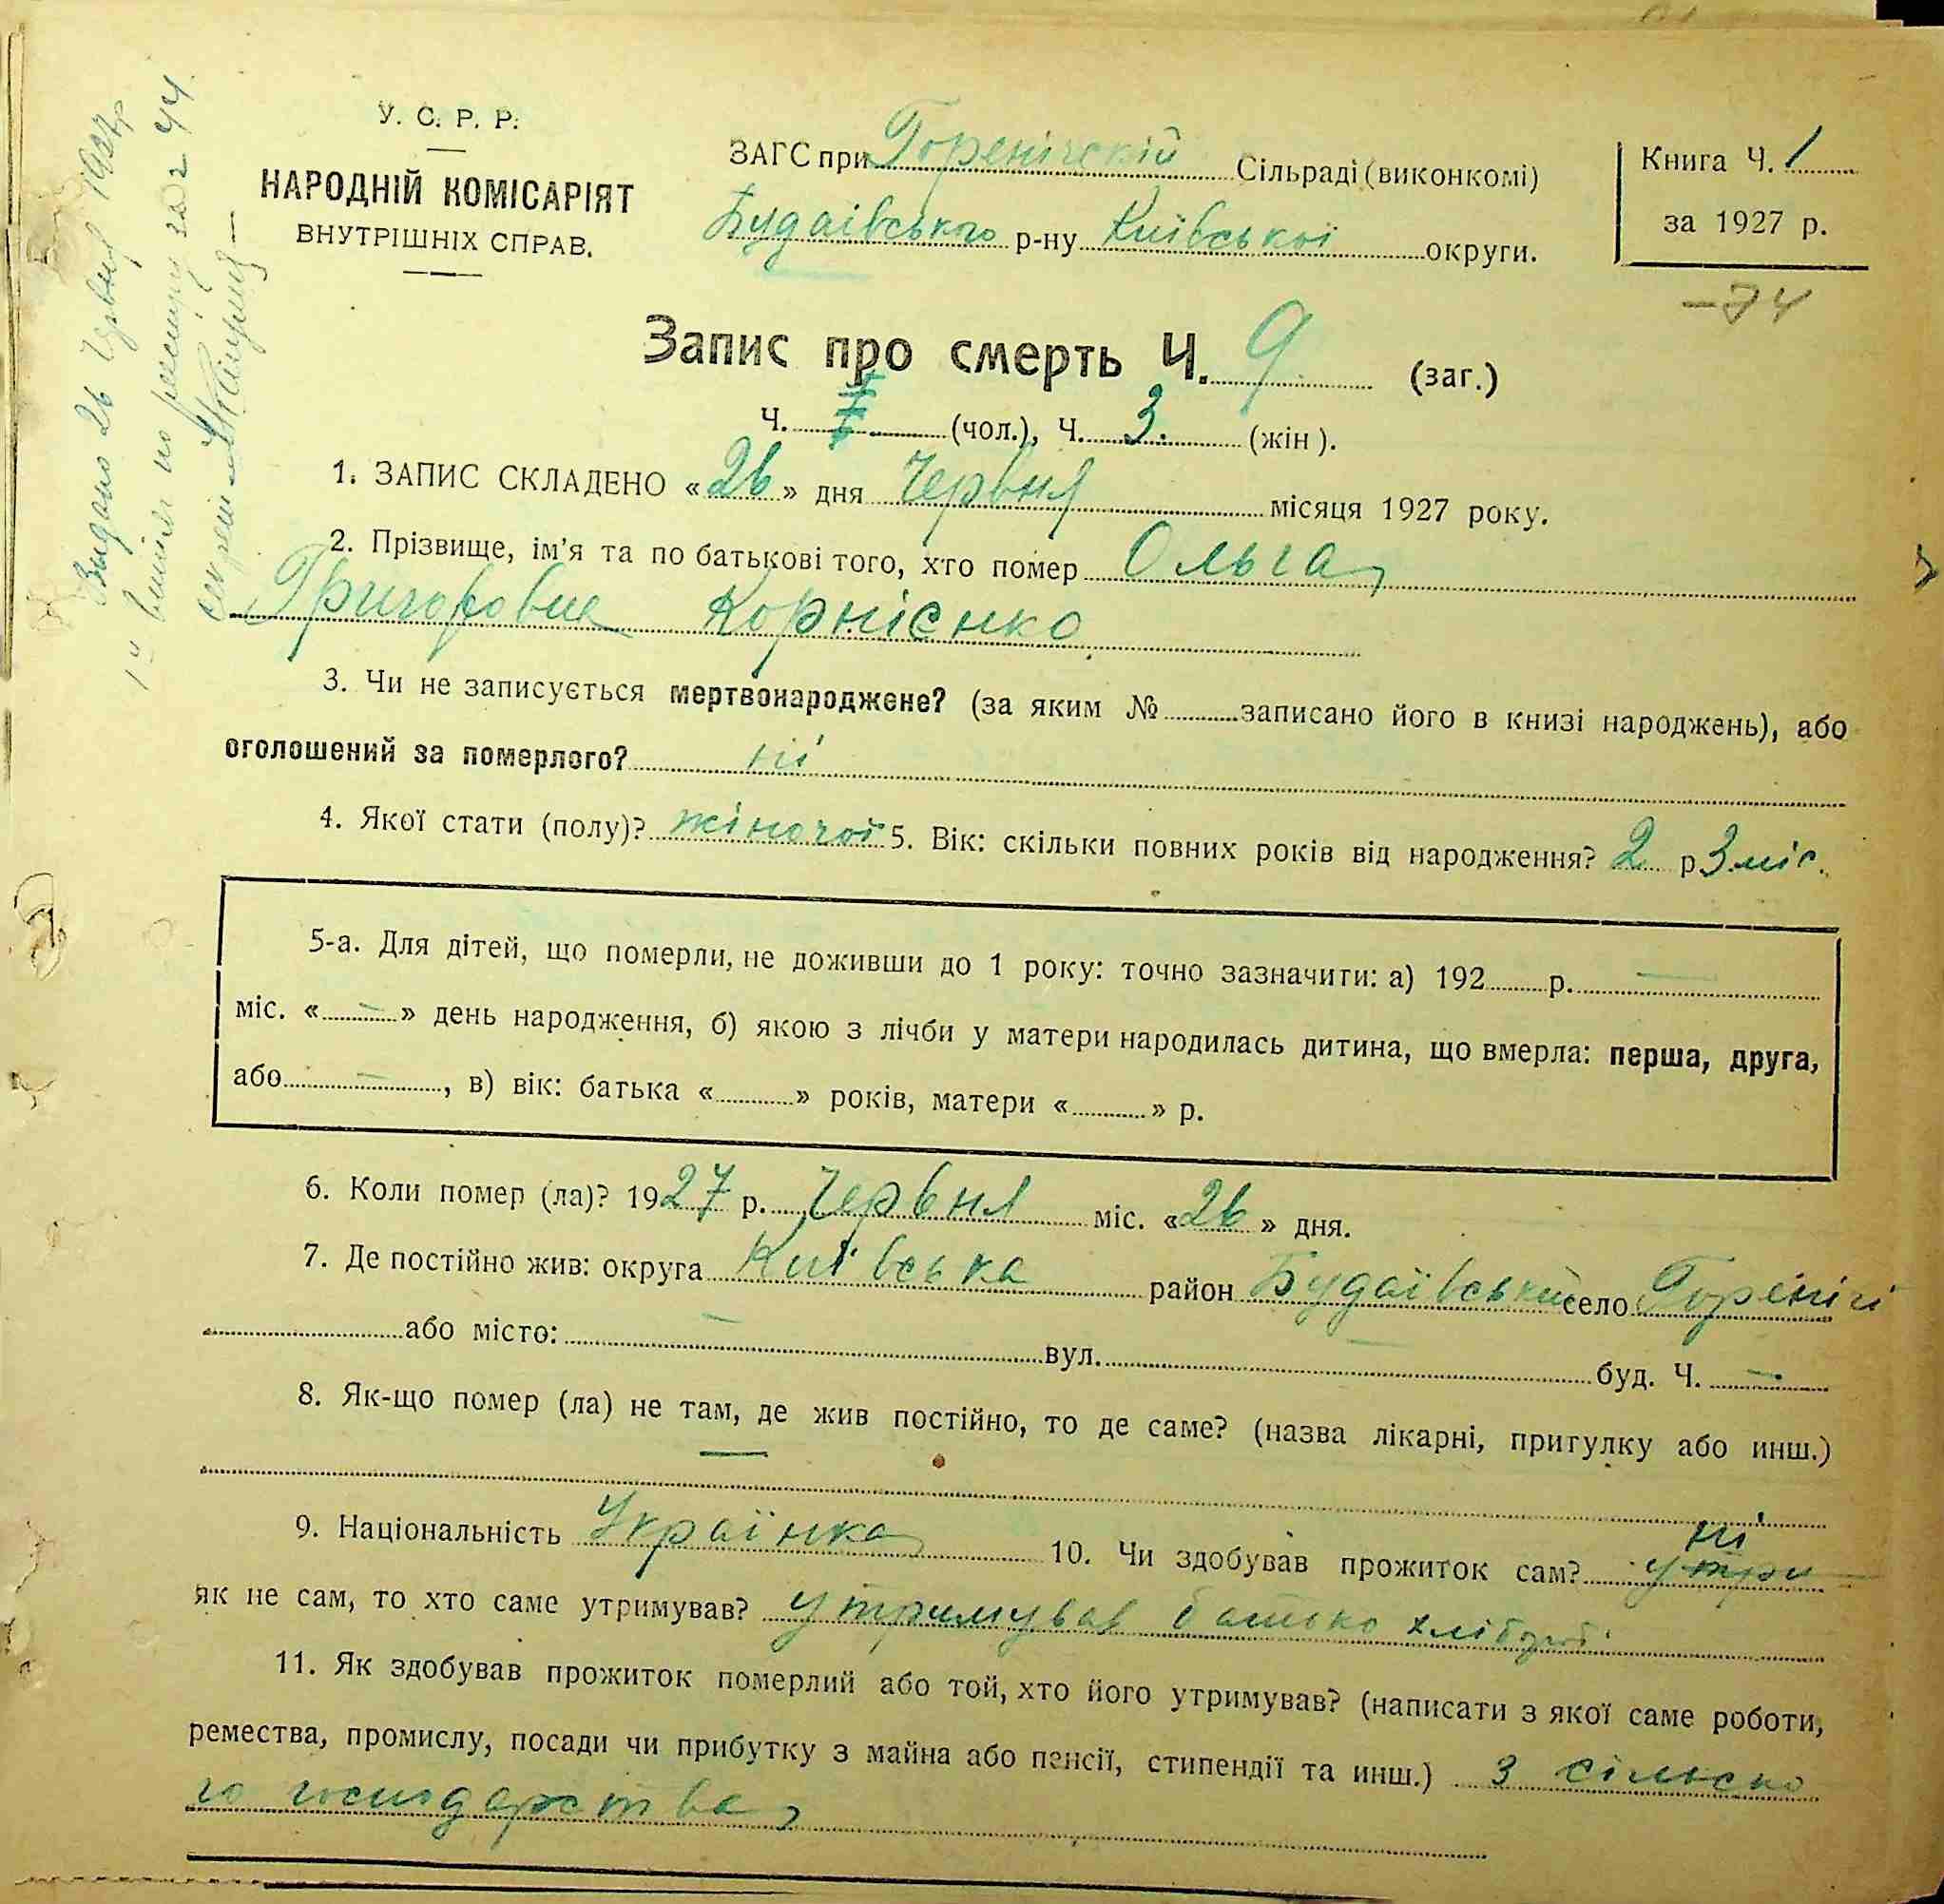 У. С. Р. Р.
НАРОДНІЙ КОМІСАРІЯТ
ВНУТРІШНІХ СПРАВ.
ЗАГС при Горенічскій Сільраді (виконкомі)
Будаівського р-ну Київської округи.
Книга Ч. 1
за 1927 р.
-74
Запис про смерть Ч. 9 (заг.)
Ч. (чол.), Ч. 3. (жін).
1. ЗАПИС СКЛАДЕНО «26» дня Червня місяця 1927 року.
2. Прізвище, ім'я та по батькові того, хто помер Ольга
Григоровна Корнієнко
3. Чи не записується мертвонароджене? (за яким № записано його в книзі народжень), або
оголошений за померлого? ні
4. Якої стати (полу)? жіночої 5. Вік: скільки повних років від народження? 2 р 3 міс.
5-а. Для дітей, що померли, не доживши до 1 року: точно зазначити: а) 192 р. —
міс. «—» день народження, б) якою з лічби у матери народилась дитина, що вмерла: перша, друга,
або —, в) вік: батька « » років, матери « » р.
6. Коли помер (ла)? 1927 р. Червня міс. «26» дня.
7. Де постійно жив: округа Київська район Будаївський село Горенічі
або місто: — вул. — буд. Ч. —
8. Як-що помер (ла) не там, де жив постійно, то де саме? (назва лікарні, притулку або инш.)
—
9. Національність Українка 10. Чи здобував прожиток сам? ні утри
як не сам, то хто саме утримував? утримував батько хлібороб
11. Як здобував прожиток померлий або той, хто його утримував? (написати з якої саме роботи,
ремества, промислу, посади чи прибутку з майна або пенсії, стипендії та инш.) з сільсько
го господарства
Видано 26 Червня 1927 р
витяг по реєстру за № 44
секретар